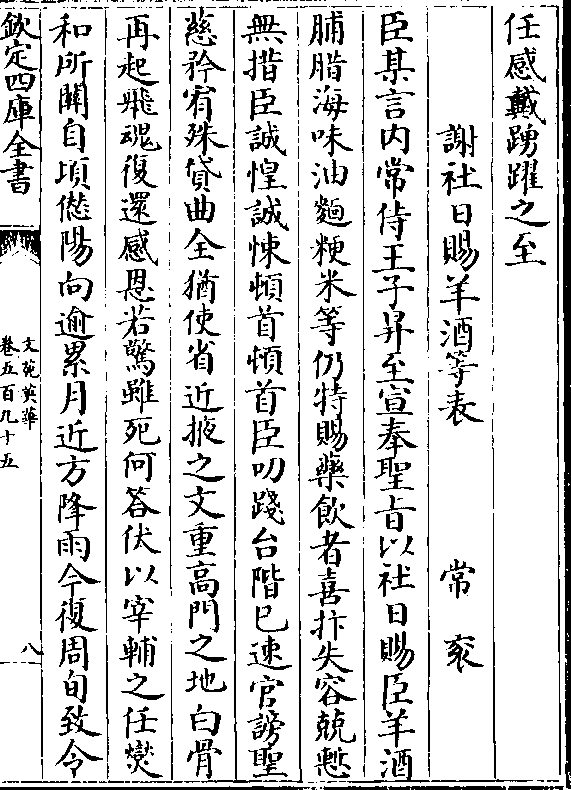 任感戴踴躍之至
謝社日賜羊酒等表 常衮
臣某言内常侍王子昇至宣奉聖旨以社日賜臣羊酒
脯腊海味油麵粳米等仍特賜藥飲者喜抃失容兢慙
無措臣誠惶誠悚頓首頓首臣叨踐台階已速官謗聖
慈矜宥殊貸曲全猶使省近掖之文重高門之地白骨
再起飛魂復還感恩若驚雖死何答伏以宰輔之任爕
和所關自頃愆陽向逾累月近方降雨今復周旬致令
欽定四庫全書
文苑英華
卷五百九十五
八